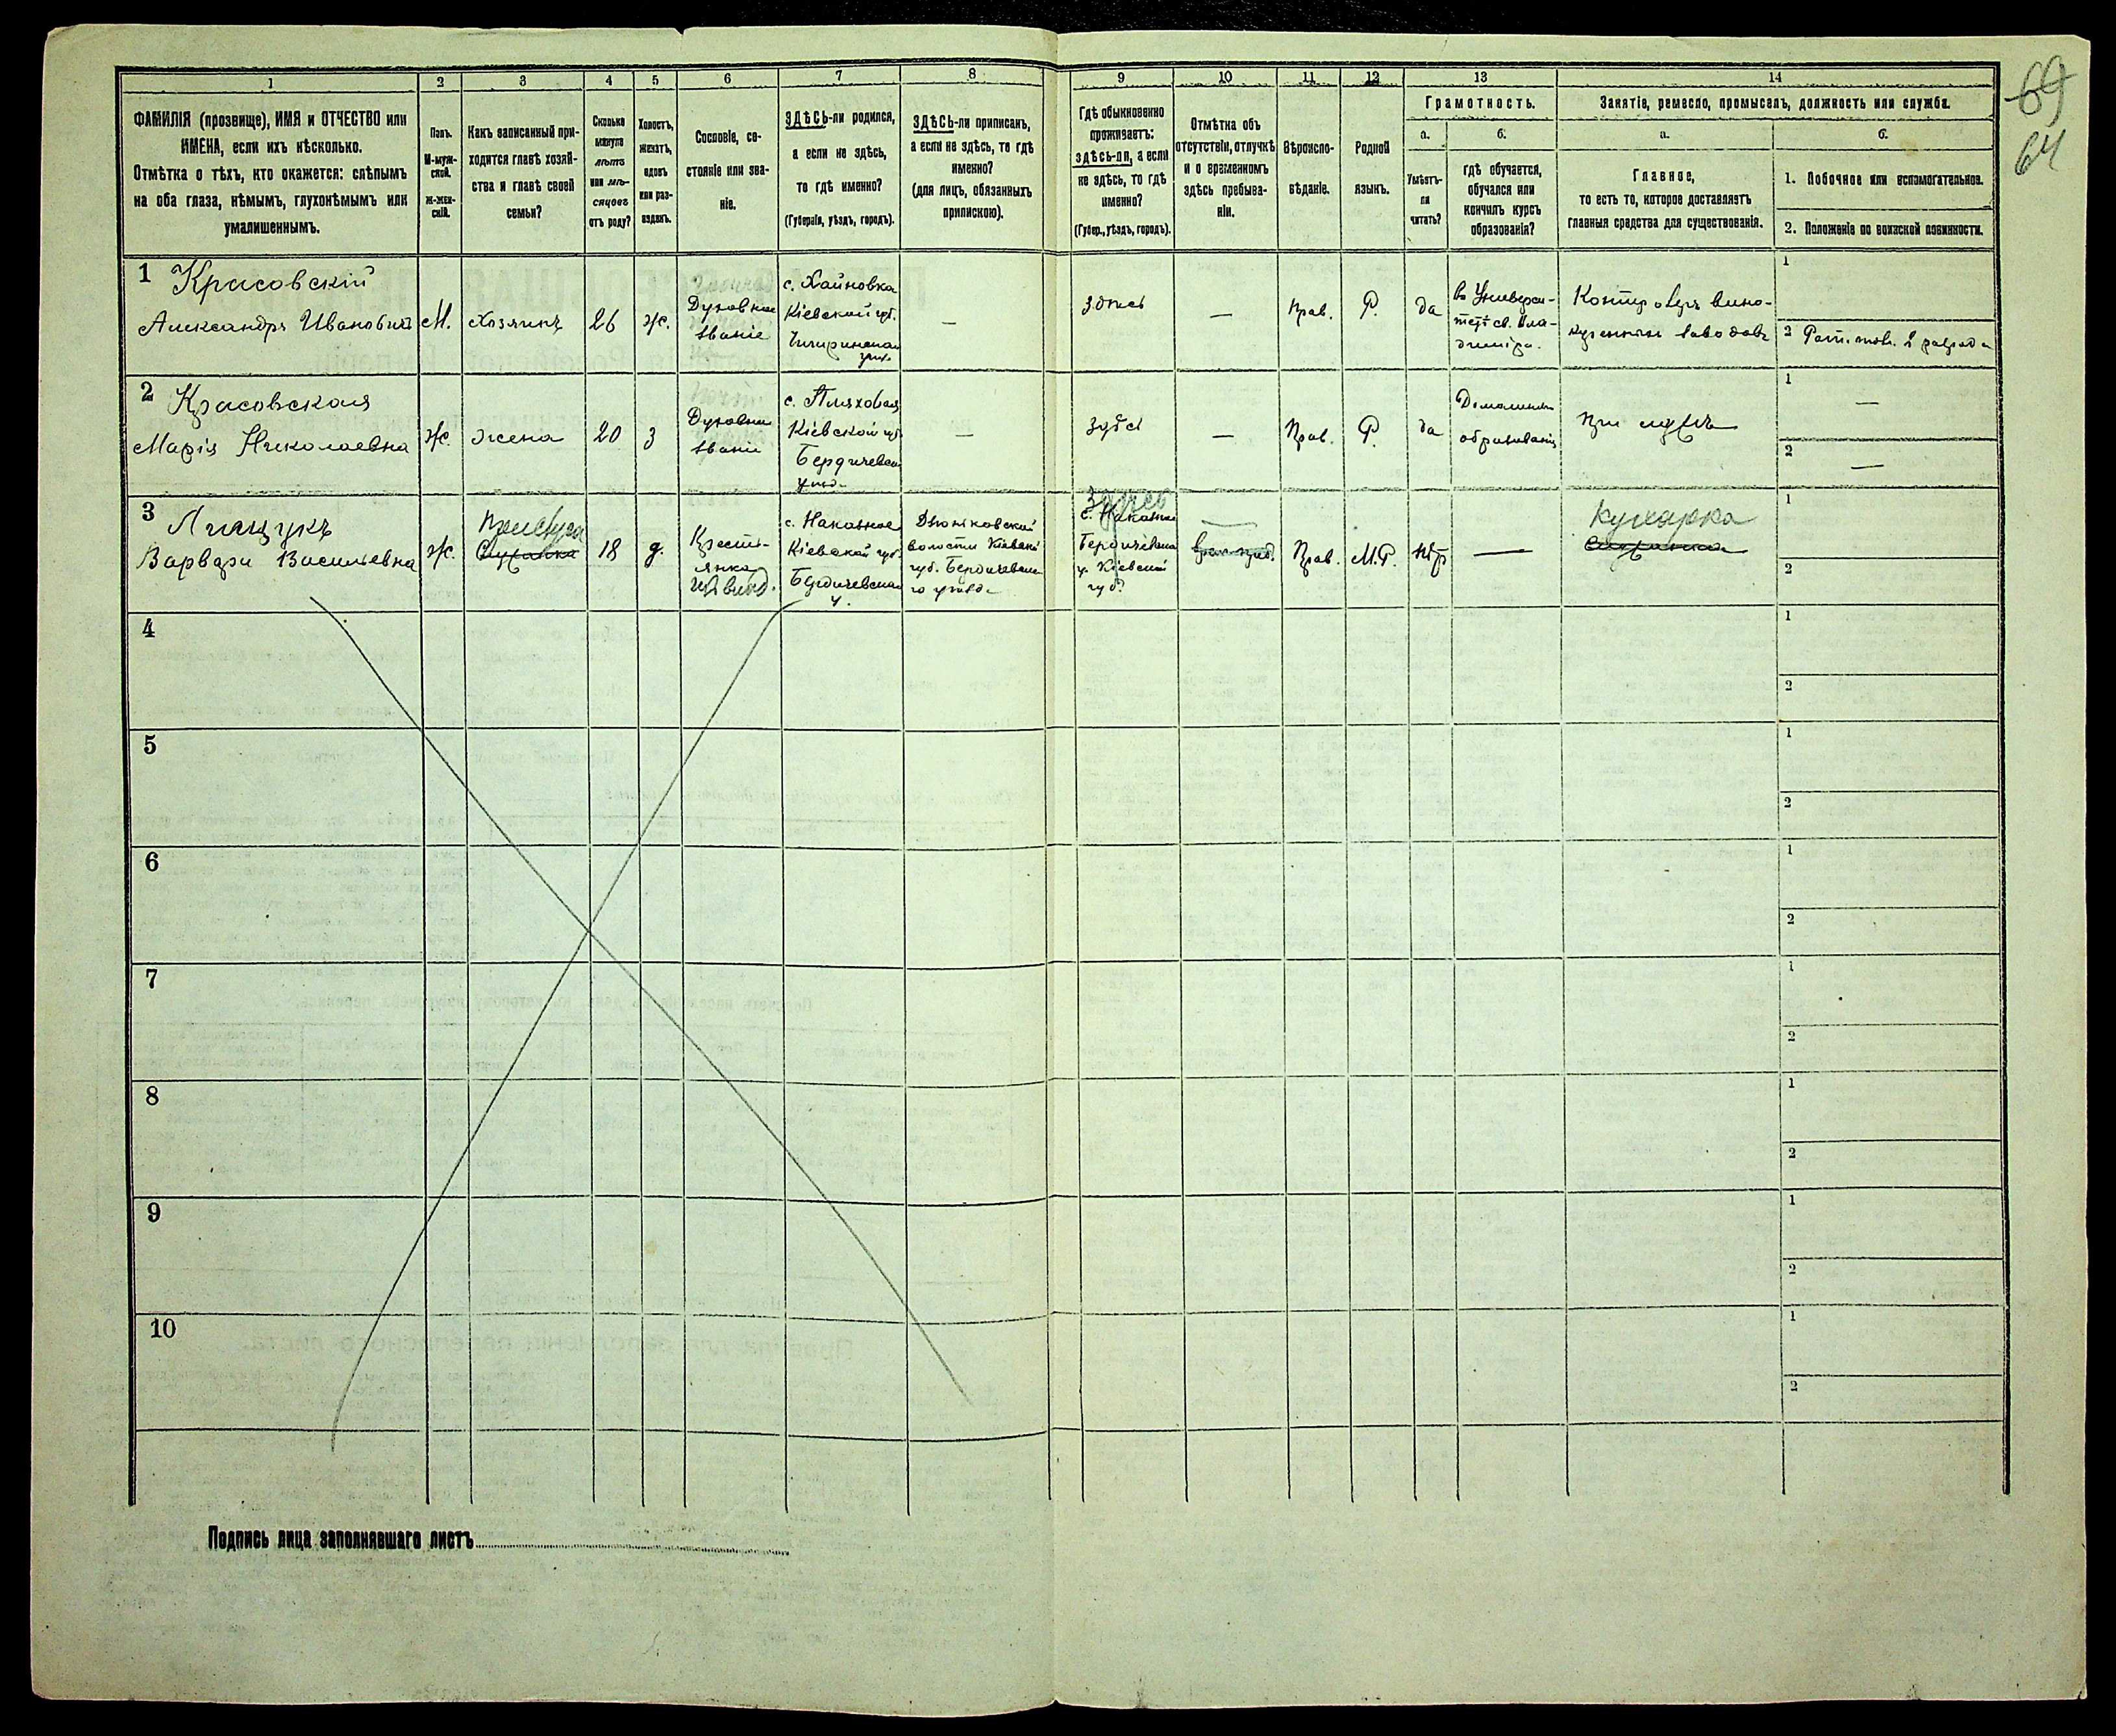 69
64
1
2
3
4
5
6
7
8
9
10
11
12
13
14
ФАМИЛІЯ (прозвище), ИМЯ и ОТЧЕСТВО или
ИМЕНА, если ихъ нѣсколько.
Отмѣтка о тѣхъ, кто окажется: слѣпымъ
на оба глаза, нѣмымъ, глухонѣмымъ или
умалишеннымъ.
Полъ.
М-муж-
ской.
Ж-жен-
скій.
Какъ записанный при-
ходится главѣ хозяй-
ства и главѣ своей
семьи?
Сколько
минуло
лѣтъ
или мѣ-
сяцевъ
отъ роду?
Холостъ,
женатъ,
вдовъ
или раз-
веденъ.
Сословіе, со-
стояніе или зва-
ніе.
ЗДѢСЬ-ли родился,
а если не здѣсь,
то гдѣ именно?
(Губернія, уѣздъ, городъ).
ЗДѢСЬ-ли приписанъ,
а если не здѣсь, то гдѣ
именно?
(для лицъ, обязанныхъ
припискою).
Гдѣ обыкновенно
проживаетъ:
здѣсь-ли, а если
не здѣсь, то гдѣ
именно?
(Губер., уѣздъ, городъ).
Отмѣтка объ
отсутствіи, отлучкѣ
и о временномъ
здѣсь пребыва-
ніи.
Вѣроиспо-
вѣданіе.
Родной
языкъ.
Грамотность.
а.
Умѣетъ-
ли
читать?
б.
гдѣ обучается,
обучался или
кончилъ курсъ
образованія?
Занятіе, ремесло, промыселъ, должность или служба.
а.
Главное,
то есть то, которое доставляетъ
главныя средства для существованія.
б.
1. Побочное или вспомогательное.
2. Положеніе по воинской повинности.
1
Красовскій
Александръ Ивановичъ
М.
хозяинъ
26
ж.
Духовное
званіе
с. Хайновка
Кіевской губ.
Чигиринскаго
уѣзд.
—
здѣсь
—
Прав.
Р.
да
въ Универси-
тетѣ св. Вла-
диміра.
Контролеръ вино-
куренныхъ заводовъ
1
2 Рат. опол. 2 разряда
2
Красовская
Марія Николаевна
Ж.
жена
20
з
Духовное
званіе
с. Пляховая
Кіевской губ.
Бердичевск.
уѣзд.
—
здѣсь
—
Прав.
Р.
да
Домашнее
образованіе
При мужѣ
1
—
2
—
3
Лищукъ
Варвара Васильевна
ж.
Прислуга
Служанка
18
д.
Крест-
янка
с. Наказное
Кіевской губ.
Бердичевскаго
у.
волости Кіевской
губ. Бердичевска-
го уѣзда
Здѣсь
с. Наказное
Бердичевскаго
у. Кіевской
губ.
—
Прав.
М.Р.
нѣт
—
Кухарка
Служанка
1
2
4
1
2
5
1
2
6
1
2
7
1
2
8
1
2
9
1
2
10
1
2
Подпись лица заполнявшаго листъ